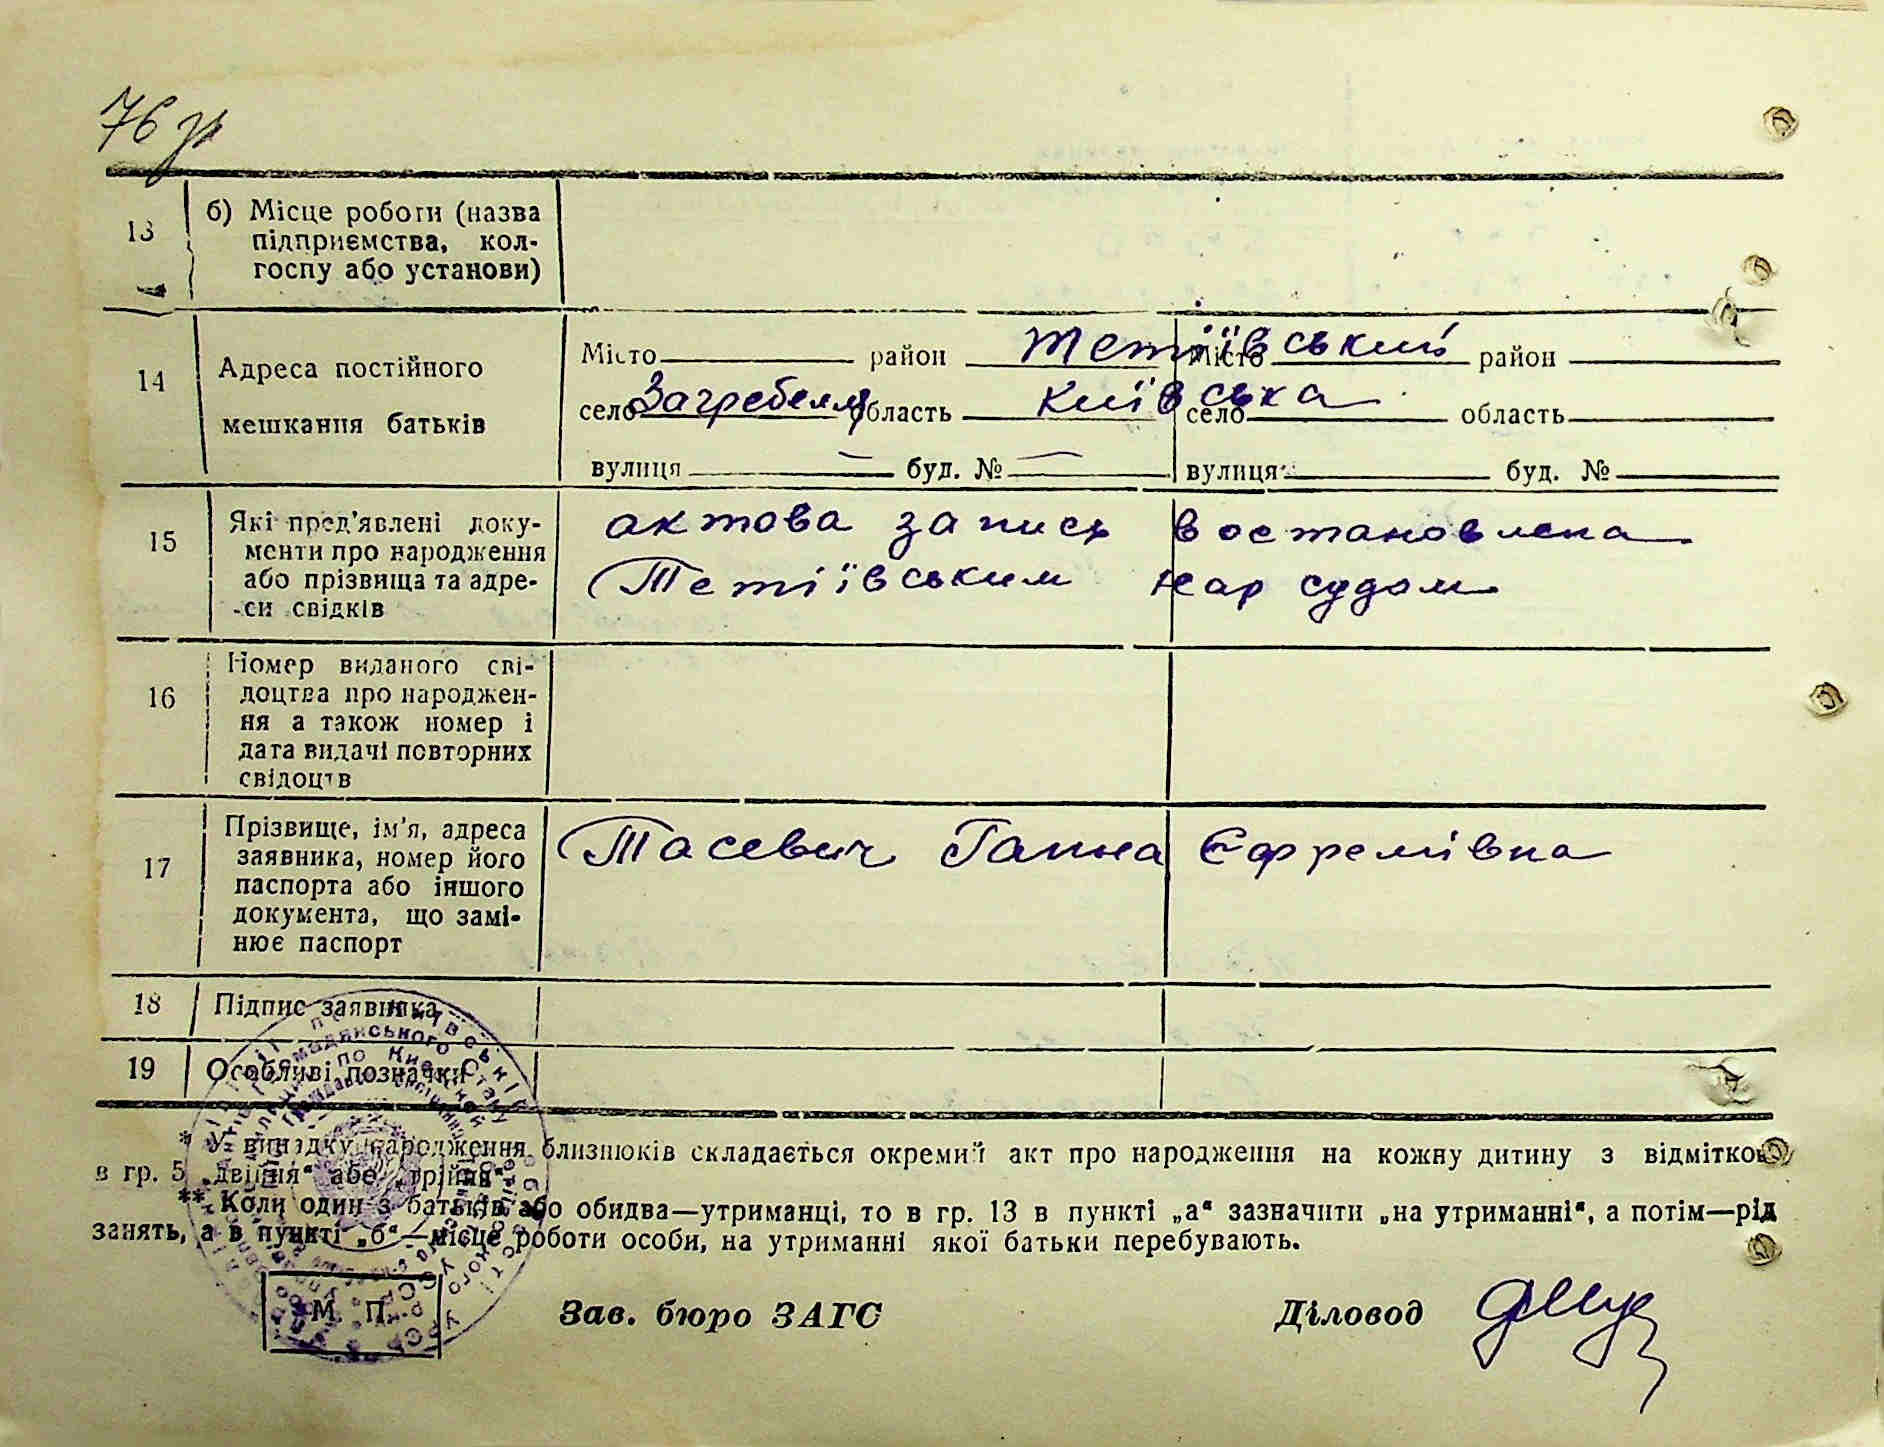 76 зв
13
б) Місце роботи (назва
підприємства, кол-
госпу або установи)
14
Адреса постійного
мешкання батьків
Місто район Тетіївський Місто район
село Загребелля область Київська село область
вулиця — буд. № — вулиця буд. №
15
Які пред'явлені доку-
менти про народження
або прізвища та адре-
си свідків
актова запись востановлена
Тетіївським нар судом
16
Номер виданого сві-
доцтва про народжен-
ня а також номер і
дата видачі повторних
свідоцтв
17
Прізвище, ім'я, адреса
заявника, номер його
паспорта або іншого
документа, що замі-
нює паспорт
Тасевич Ганна Єфремівна
18 Підпис заявника
19 Особливі позначки
* У випадку народження близнюків складається окремий акт про народження на кожну дитину з відміткою
в гр. 5 „двійня“ або „трійня“.
** Коли один з батьків або обидва—утриманці, то в гр. 13 в пункті „а“ зазначити „на утриманні“, а потім—рід
занять, а в пункті „б“—місце роботи особи, на утриманні якої батьки перебувають.
М. П.
Зав. бюро ЗАГС Діловод